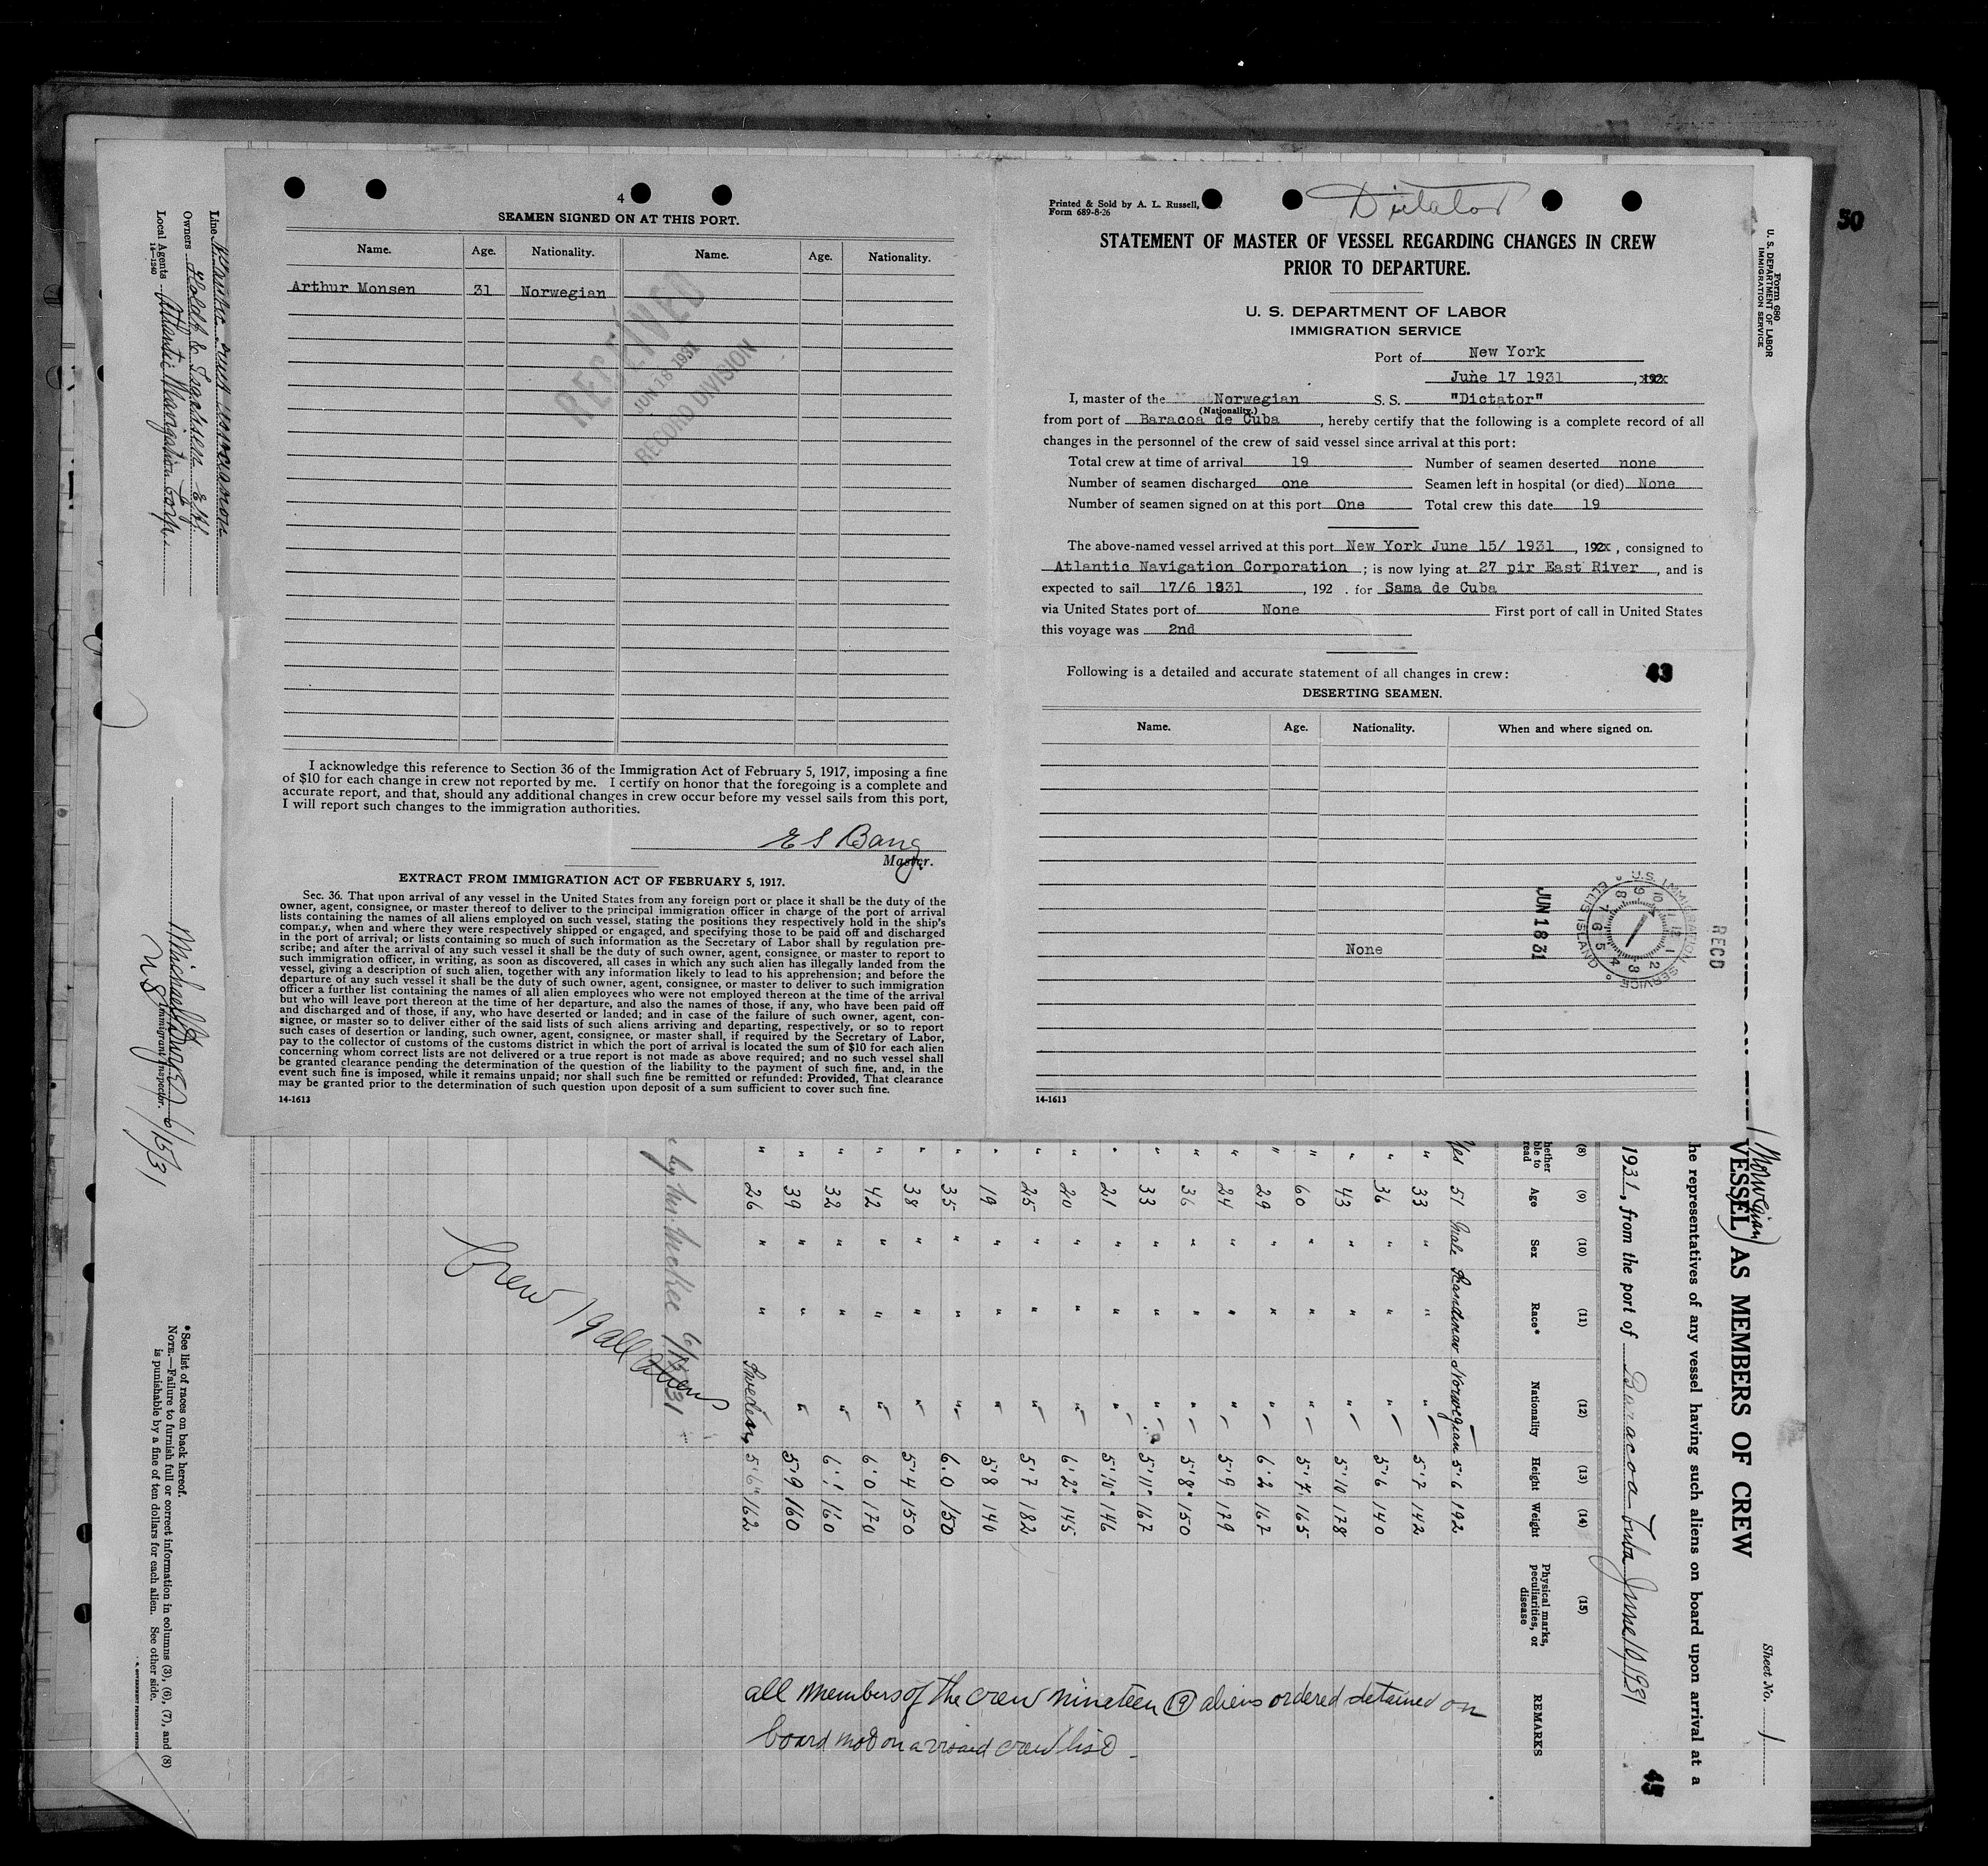 50
4
SEAMEN SIGNED ON AT THIS PORT.
Name. Age. Nationality. Name. Age. Nationality.
Arthur Monsen 31 Norwegian
RECEIVED
JUN 18 1931
RECORD DIVISION
I acknowledge this reference to Section 36 of the Immigration Act of February 5, 1917, imposing a fine
of $10 for each change in crew not reported by me. I certify on honor that the foregoing is a complete and
accurate report, and that, should any additional changes in crew occur before my vessel sails from this port,
I will report such changes to the immigration authorities.
E S Bang
Master.
EXTRACT FROM IMMIGRATION ACT OF FEBRUARY 5, 1917.
Sec. 36. That upon arrival of any vessel in the United States from any foreign port or place it shall be the duty of the
owner, agent, consignee, or master thereof to deliver to the principal immigration officer in charge of the port of arrival
lists containing the names of all aliens employed on such vessel, stating the positions they respectively hold in the ship's
company, when and where they were respectively shipped or engaged, and specifying those to be paid off and discharged
in the port of arrival; or lists containing so much of such information as the Secretary of Labor shall by regulation pre-
scribe; and after the arrival of any such vessel it shall be the duty of such owner, agent, consignee, or master to report to
such immigration officer, in writing, as soon as discovered, all cases in which any such alien has illegally landed from the
vessel, giving a description of such alien, together with any information likely to lead to his apprehension; and before the
departure of any such vessel it shall be the duty of such owner, agent, consignee, or master to deliver to such immigration
officer a further list containing the names of all alien employees who were not employed thereon at the time of the arrival
but who will leave port thereon at the time of her departure, and also the names of those, if any, who have been paid off
and discharged and of those, if any, who have deserted or landed; and in case of the failure of such owner, agent, con-
signee, or master so to deliver either of the said lists of such aliens arriving and departing, respectively, or so to report
such cases of desertion or landing, such owner, agent, consignee, or master shall, if required by the Secretary of Labor,
pay to the collector of customs of the customs district in which the port of arrival is located the sum of $10 for each alien
concerning whom correct lists are not delivered or a true report is not made as above required; and no such vessel shall
be granted clearance pending the determination of the question of the liability to the payment of such fine, and, in the
event such fine is imposed, while it remains unpaid; nor shall such fine be remitted or refunded: Provided, That clearance
may be granted prior to the determination of such question upon deposit of a sum sufficient to cover such fine.
14-1613
Printed & Sold by A. L. Russell,
Form 689-8-26
Dictator
STATEMENT OF MASTER OF VESSEL REGARDING CHANGES IN CREW
PRIOR TO DEPARTURE.
U. S. DEPARTMENT OF LABOR
IMMIGRATION SERVICE
Port of New York
June 17 1931, 192
I, master of the Norwegian S. S. "Dictator"
(Nationality.)
from port of Baracoa de Cuba, hereby certify that the following is a complete record of all
changes in the personnel of the crew of said vessel since arrival at this port:
Total crew at time of arrival 19 Number of seamen deserted none
Number of seamen discharged one Seamen left in hospital (or died) None
Number of seamen signed on at this port One Total crew this date 19
The above-named vessel arrived at this port New York June 15/ 1931, 192x, consigned to
Atlantic Navigation Corporation; is now lying at 27 pir East River, and is
expected to sail 17/6 1931, 192 . for Sama de Cuba
via United States port of None First port of call in United States
this voyage was 2nd
Following is a detailed and accurate statement of all changes in crew:
43
DESERTING SEAMEN.
Name. Age. Nationality. When and where signed on.
None
14-1613
U.S. IMMIGRATION SERVICE ELLIS ISLAND
JUN 18 31
RECD
Form 680
U. S. DEPARTMENT OF LABOR
IMMIGRATION SERVICE
Sheet No. 1
(Norwegian)
VESSEL AS MEMBERS OF CREW
he representatives of any vessel having such aliens on board upon arrival at a
1931, from the port of Baracoa Cuba June 10 1931
45
(8) (9) (10) (11) (12) (13) (14) (15)
hether ble to read Age Sex Race* Nationality Height Weight Physical marks, peculiarities, or disease REMARKS
Yes 51 Male Scandinav Norwegian 5'6 192
" 33 " " " 5'7 142
" 36 " " " 5'6 140
" 43 " " " 5'10 178
" 60 " " " 5'7 165
" 29 " " " 6'2 167
" 24 " " " 5'9 179
" 36 " " " 5'8" 150
" 33 " " " 5'11" 167
" 21 " " " 5'10" 146
" 20 " " " 6'2" 145
" 25 " " " 5'7 182
" 19 " " " 5'8 140
" 35 " " " 6.0 150
" 38 " " " 5'4 150
" 42 " " " 6'0 170
" 32 " " " 6'1 160
" 39 " " " 5'9 160
" 26 " " Sweden 5'6" 162
all members of the crew nineteen (19) aliens ordered detained on
board not on a visaed crew list
Crew 19 all aliens
Line
Owners
Local Agents Atlantic Navigation Corp.
14-1240
Immigrant Inspector. 6/15/31
*See list of races on back hereof.
NOTE.—Failure to furnish full or correct information in columns (3), (6), (7), and (8)
is punishable by a fine of ten dollars for each alien. See other side.